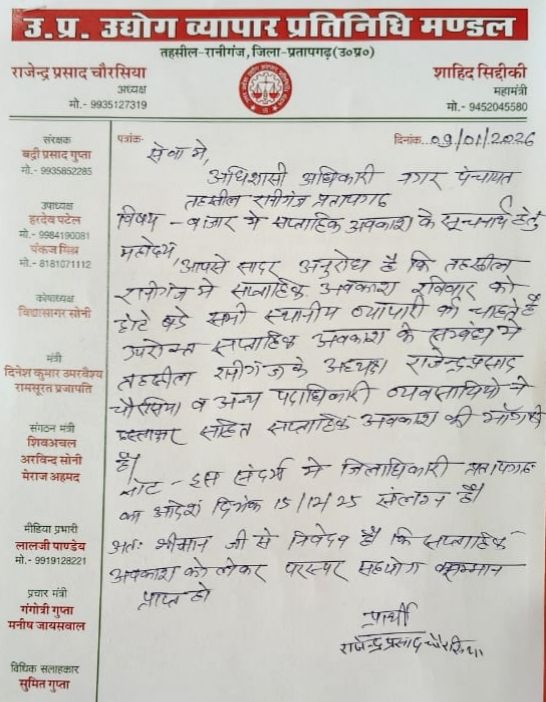 उ.प्र. उद्योग व्यापार प्रतिनिधि मण्डल
तहसील-रानीगंज, जिला-प्रतापगढ़ (उ०प्र०)
राजेन्द्र प्रसाद चौरसिया
अध्यक्ष
मो.- 9935127319
शाहिद सिद्दीकी
महामंत्री
मो.- 9452045580
संरक्षक
बद्री प्रसाद गुप्ता
मो.- 9935852285
उपाध्यक्ष
हरदेव पटेल
मो.- 9984190081
पंकज मिश्र
मो.- 8181071112
कोषाध्यक्ष
विद्यासागर सोनी
मंत्री
दिनेश कुमार उमरवैश्य
रामसूरत प्रजापति
संगठन मंत्री
शिवअचल
अरविन्द सोनी
मेराज अहमद
मीडिया प्रभारी
लालजी पाण्डेय
मो.- 9919128221
प्रचार मंत्री
गंगोत्री गुप्ता
मनीष जायसवाल
विधिक सलाहकार
सुमित गुप्ता
पत्रांक-
दिनांक..09/01/2026
सेवा में,
अधिशासी अधिकारी नगर पंचायत
तहसील रानीगंज प्रतापगढ़
विषय - बाजार में सप्ताहिक अवकाश के सूचनार्थ हेतु
महोदय,
आपसे सादर अनुरोध है कि तहसील
रानीगंज में सप्ताहिक अवकाश रविवार को
छोटे बड़े सभी स्थानीय व्यापारी की चाहते हैं
उपरोक्त सप्ताहिक अवकाश के सम्बंध में
तहसील रानीगंज के अध्यक्ष राजेन्द्र प्रसाद
चौरसिया व अन्य पदाधिकारी व्यवसायियो ने
हस्ताक्षर सहित सप्ताहिक अवकाश की माँग की
है।
नोट - इस संदर्भ में जिलाधिकारी प्रतापगढ़
का आदेश दिनांक 15/12/25 संलग्न है।
अतः श्रीमान जी से निवेदन है कि सप्ताहिक
अवकाश को लेकर परस्पर सहयोग व सम्मान
प्राप्त हो
प्रार्थी
राजेन्द्र प्रसाद चौरसिया